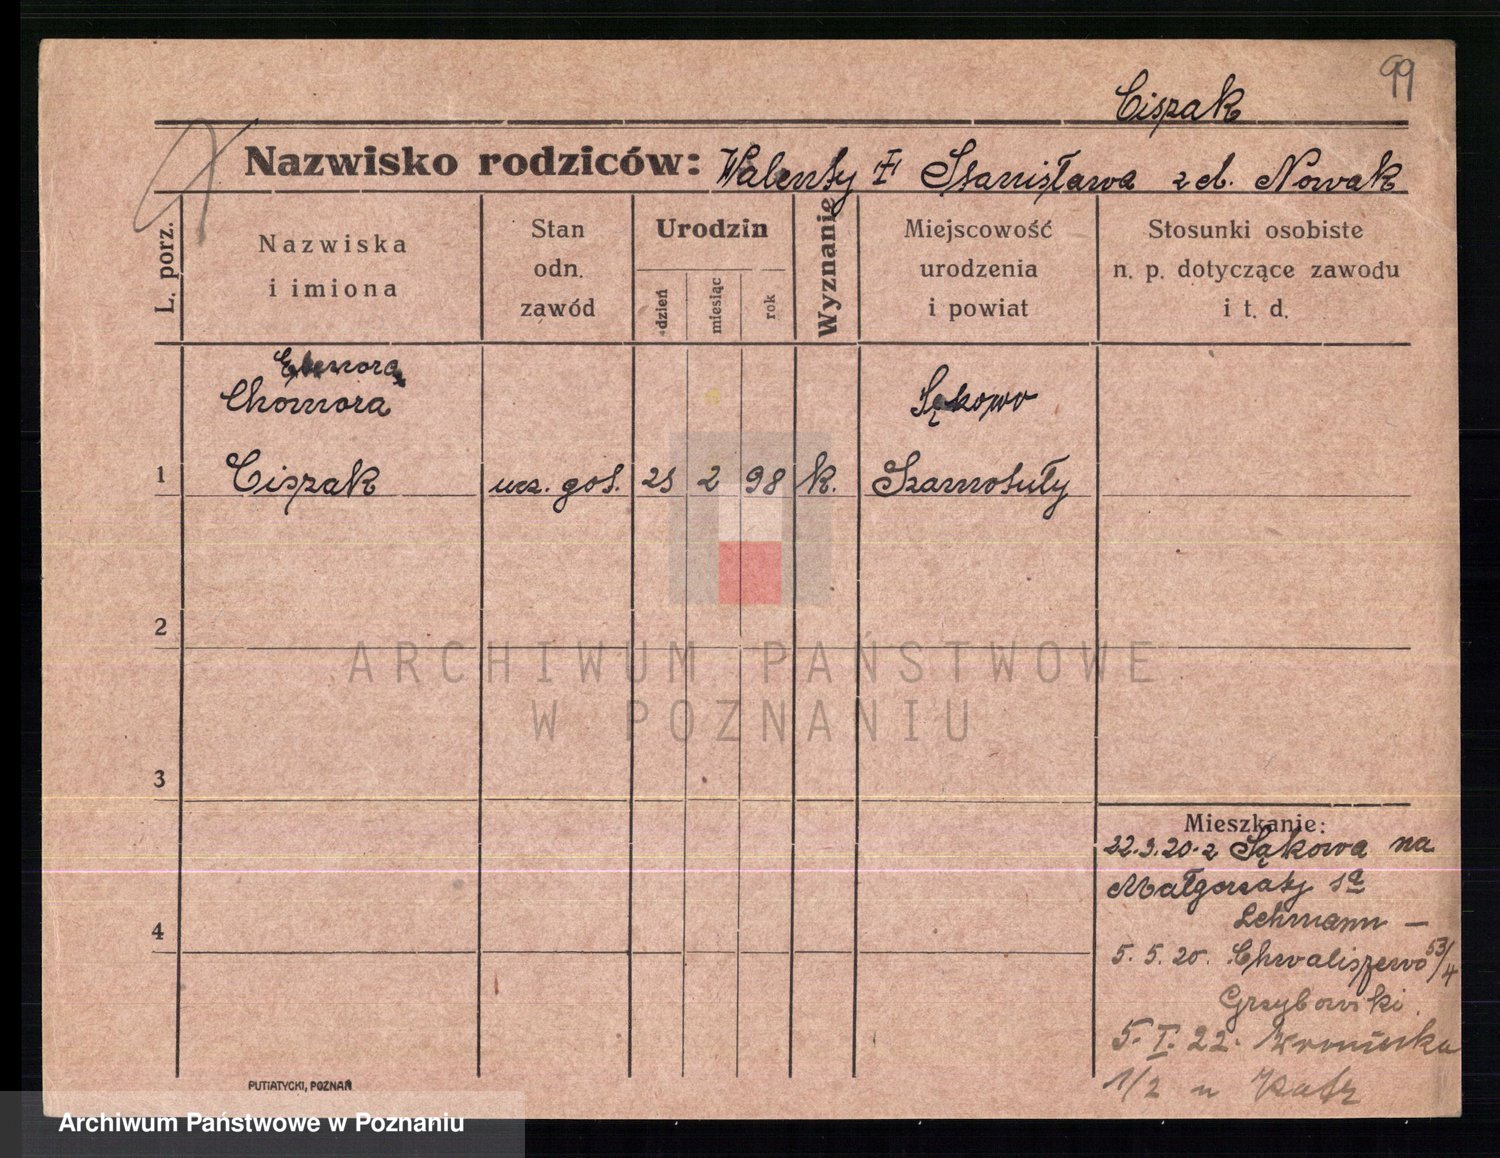 99
Ciszak
Nazwisko rodziców: Walenty i Stanisława z d. Nowak
L. porz.
Nazwiska
i imiona
Stan
odn.
zawód
Urodzin
dzień
miesiąc
rok
Wyznanie
Miejscowość
urodzenia
i powiat
Stosunki osobiste
n. p. dotyczące zawodu
i t. d.
Chomora
Sękowo
1 Ciszak ucz. gos. 25 2 98 k. Szamotuły
2
3
4
Mieszkanie:
22.3.20. z Sękowa na
Małgorzaty 1a
Lehmann —
5. 5. 20. Chwaliszewo 53/4
Grzybowski.
5. I. 22. Wroniecka
1/2 u Katz
PUTIATYCKI, POZNAŃ
ARCHIWUM PAŃSTWOWE
W POZNANIU
Archiwum Państwowe w Poznaniu